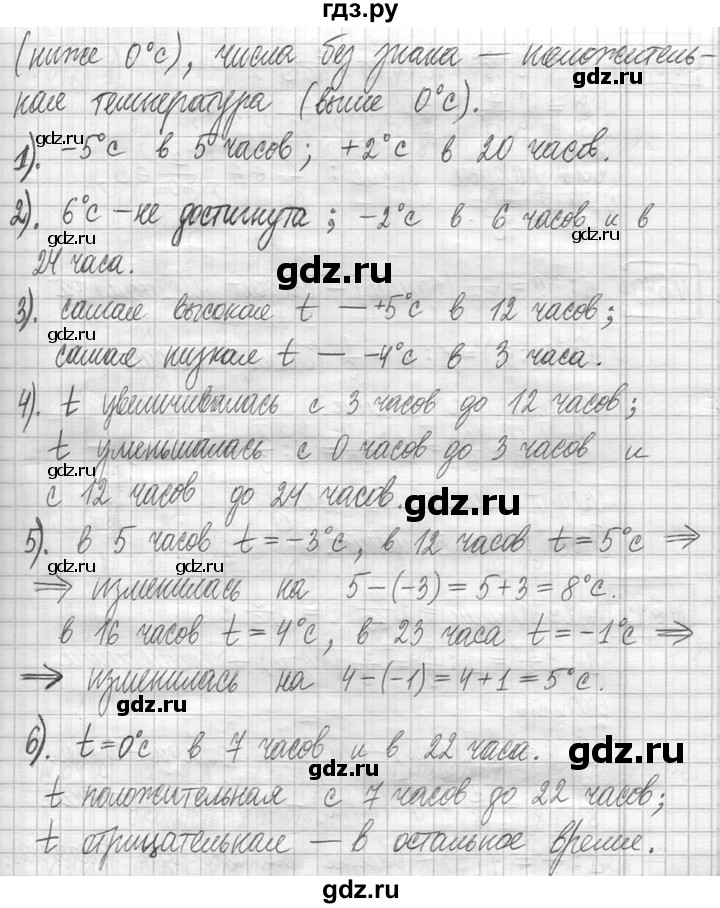 гдз.ру
(ниже 0°С), числа без знака — положитель-
ная температура (выше 0°С).
gdz.ru
1). -5°С в 5 часов; +2°С в 20 часов.
2). 6°С – не достигнута; -2°С в 6 часов и в
gdz.ru gdz.ru
24 часа.
gdz.ru
3). самая высокая t — +5°С в 12 часов;
gdz.ru
самая низкая t — -4°С в 3 часа.
4). t увеличивалась с 3 часов до 12 часов;
t уменьшалась с 0 часов до 3 часов и
gdz.ru
с 12 часов до 24 часов.
gdz.ru
5). в 5 часов t = -3°С, в 12 часов t = 5°С ⇒
gdz.ru gdz.ru
⇒ изменилась на 5-(-3) = 5+3 = 8°С.
в 16 часов t = 4°С, в 23 часа t = -1°С ⇒
⇒ изменилась на 4-(-1) = 4+1 = 5°С.
gdz.ru
6). t = 0°С в 7 часов и в 22 часа.
gdz.ru
gdz.ru
t положительная с 7 часов до 22 часов;
t отрицательная — в остальное время.
gdz.ru
gdz.ru